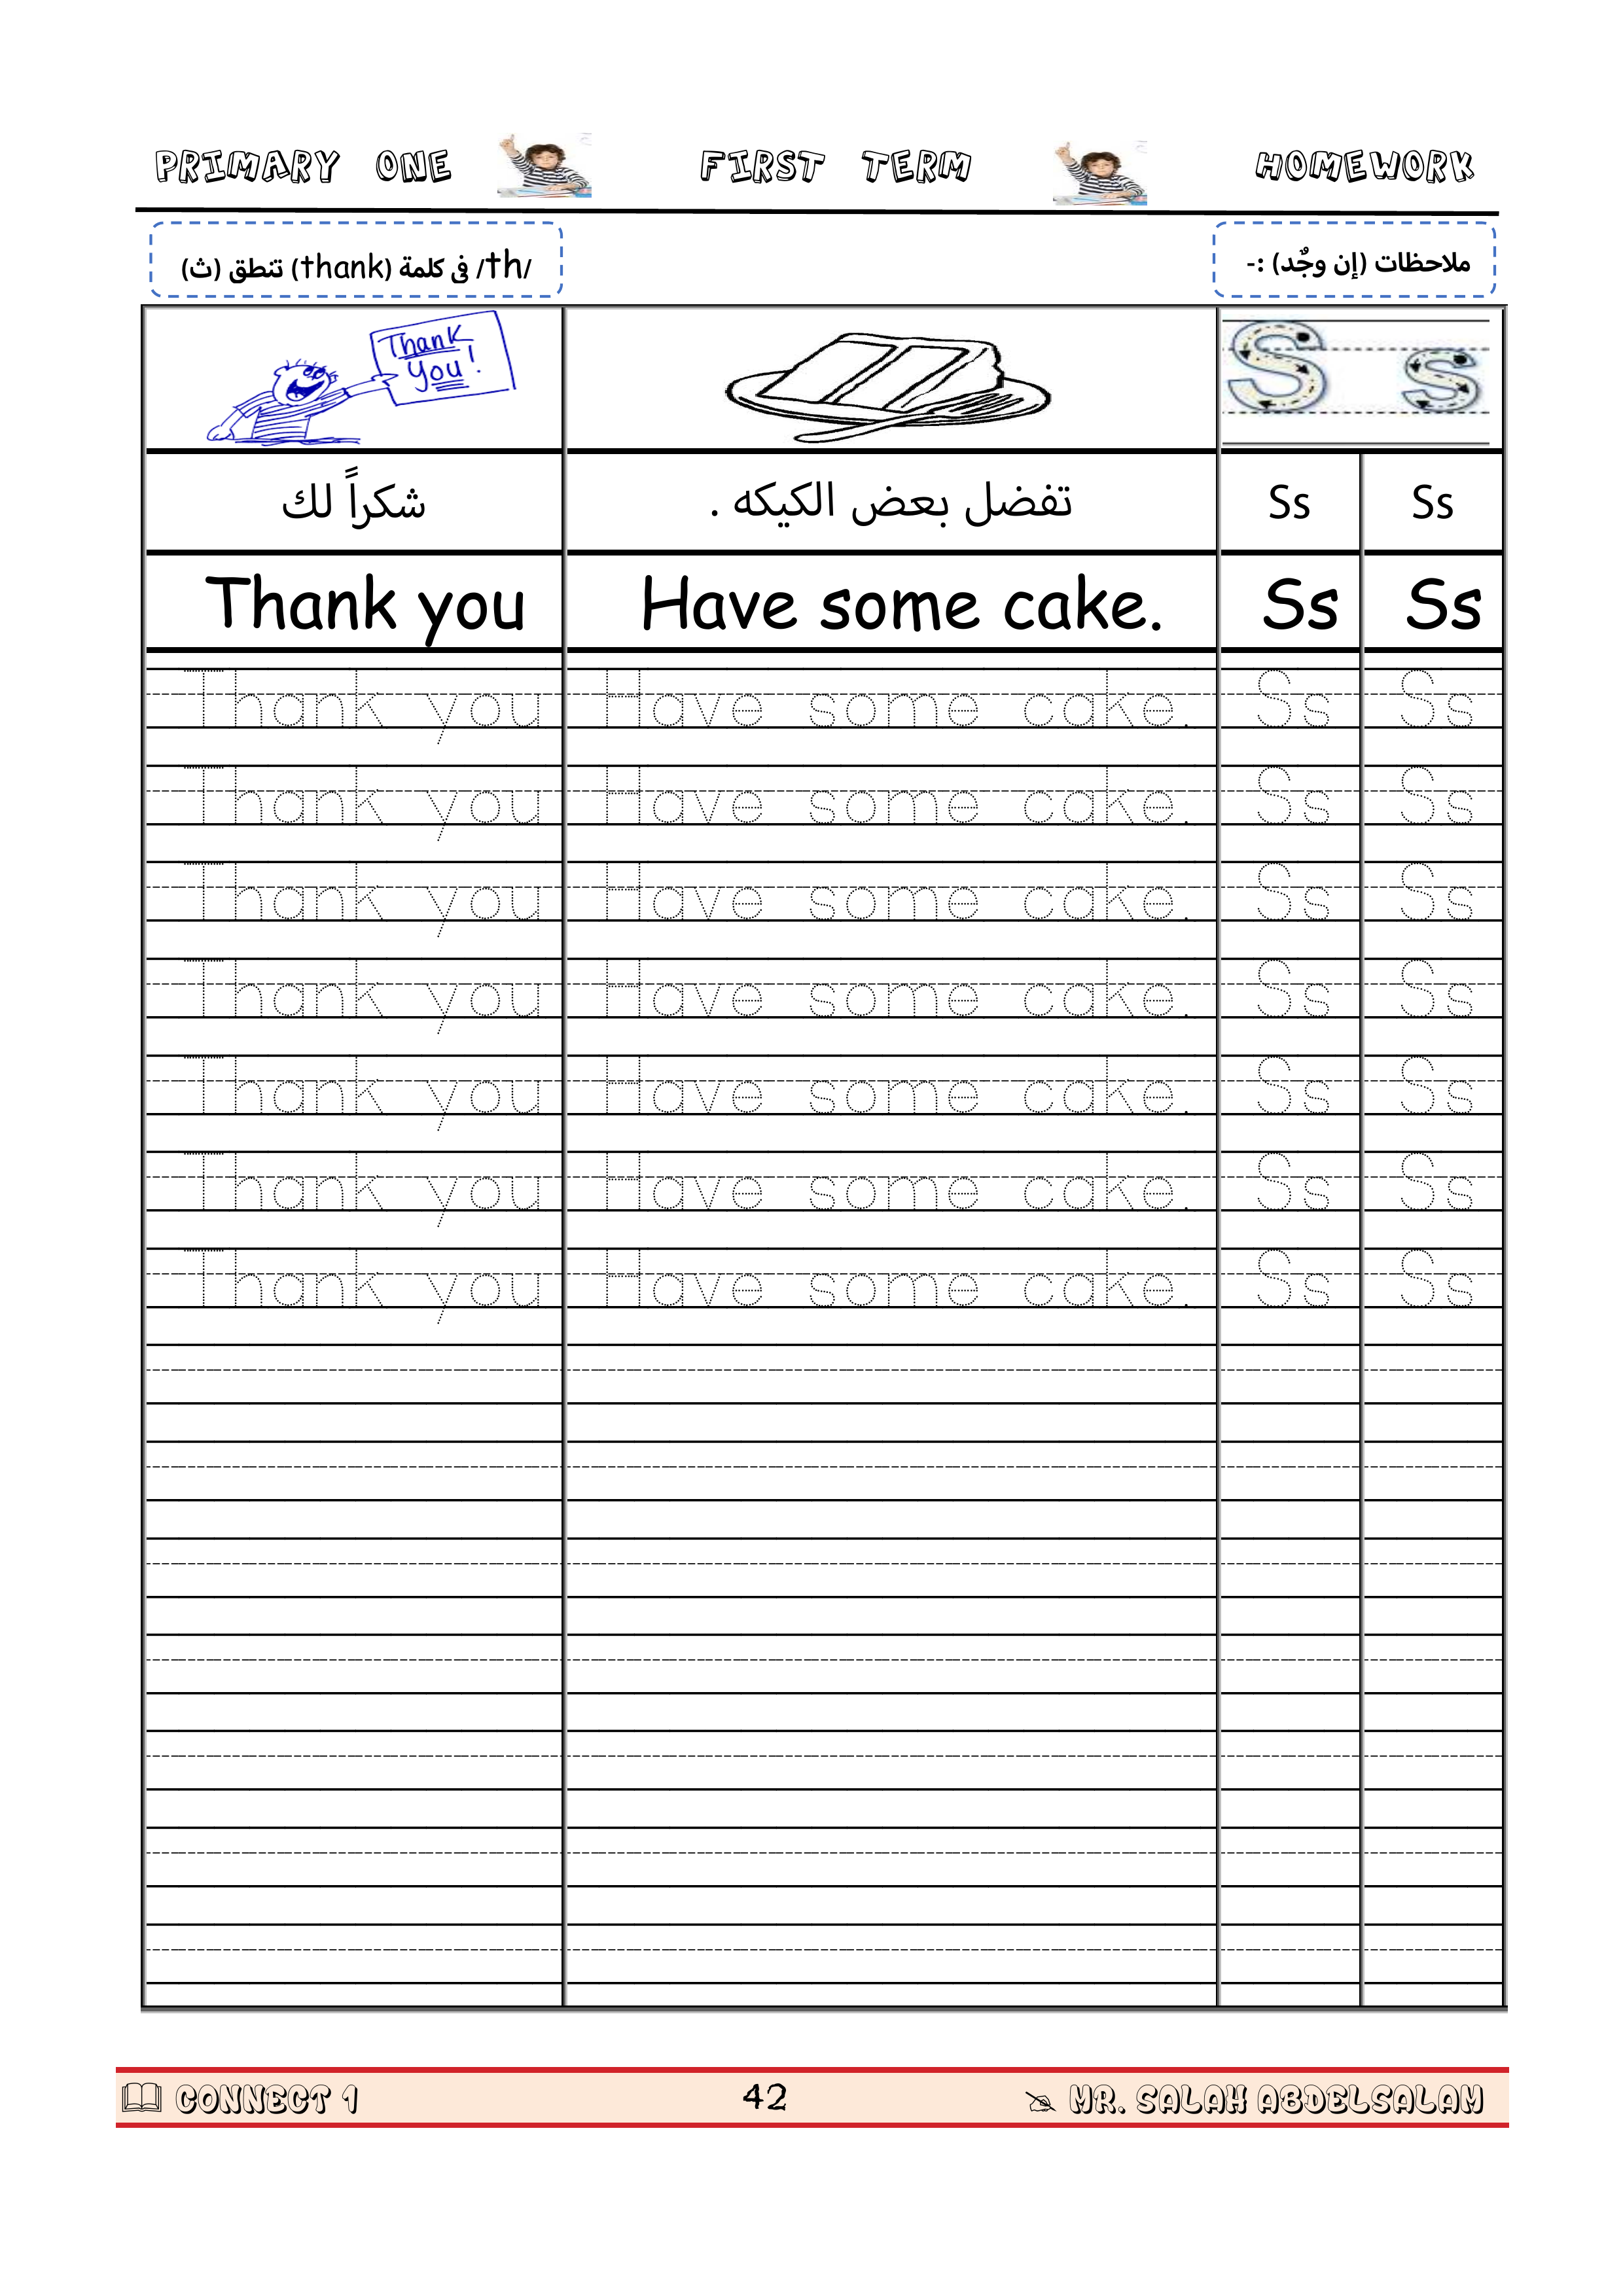 PRIMARY ONE FIRST TERM HOMEWORK
ملاحظات (إن وجٌد) :-
/th/ فى كلمة (thank) تنطق (ث)
Thank You!
S s
شكراً لك تفضل بعض الكيكه . Ss Ss
Thank you Have some cake. Ss Ss
Thank you Have some cake. Ss Ss
Thank you Have some cake. Ss Ss
Thank you Have some cake. Ss Ss
Thank you Have some cake. Ss Ss
Thank you Have some cake. Ss Ss
Thank you Have some cake. Ss Ss
Thank you Have some cake. Ss Ss
CONNECT 1 42 MR. SALAH ABDELSALAM